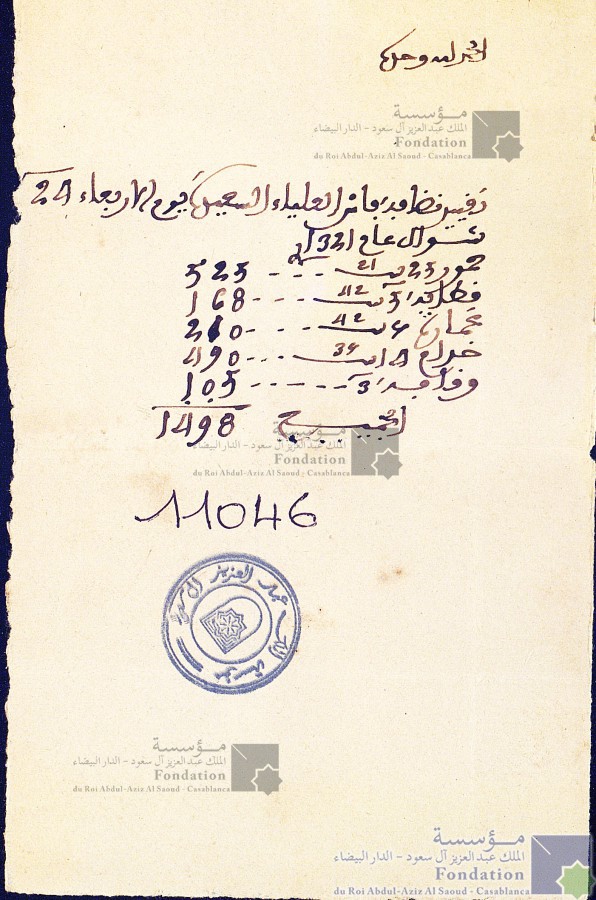 الحمد لله وحده
مؤسسة
الملك عبدالعزيز آل سعود - الدار البيضاء
Fondation
du Roi Abdul-Aziz Al Saoud - Casablanca
العلياء السعيدة يوم الاربعاء 24
شوال عام 1321
25 21 - - - 525
5 42 - - - 168
42 - - - 210
خدام 14 - - - 490
وقافة 3 - - - - - 105
الجميع 1498
مؤسسة
الملك عبدالعزيز آل سعود - الدار البيضاء
Fondation
du Roi Abdul-Aziz Al Saoud - Casablanca
11046
مؤسسة الملك عبد العزيز آل سعود
مؤسسة
الملك عبدالعزيز آل سعود - الدار البيضاء
Fondation
du Roi Abdul-Aziz Al Saoud - Casablanca
مؤسسة
الملك عبدالعزيز آل سعود - الدار البيضاء
Fondation
du Roi Abdul-Aziz Al Saoud - Casablanca